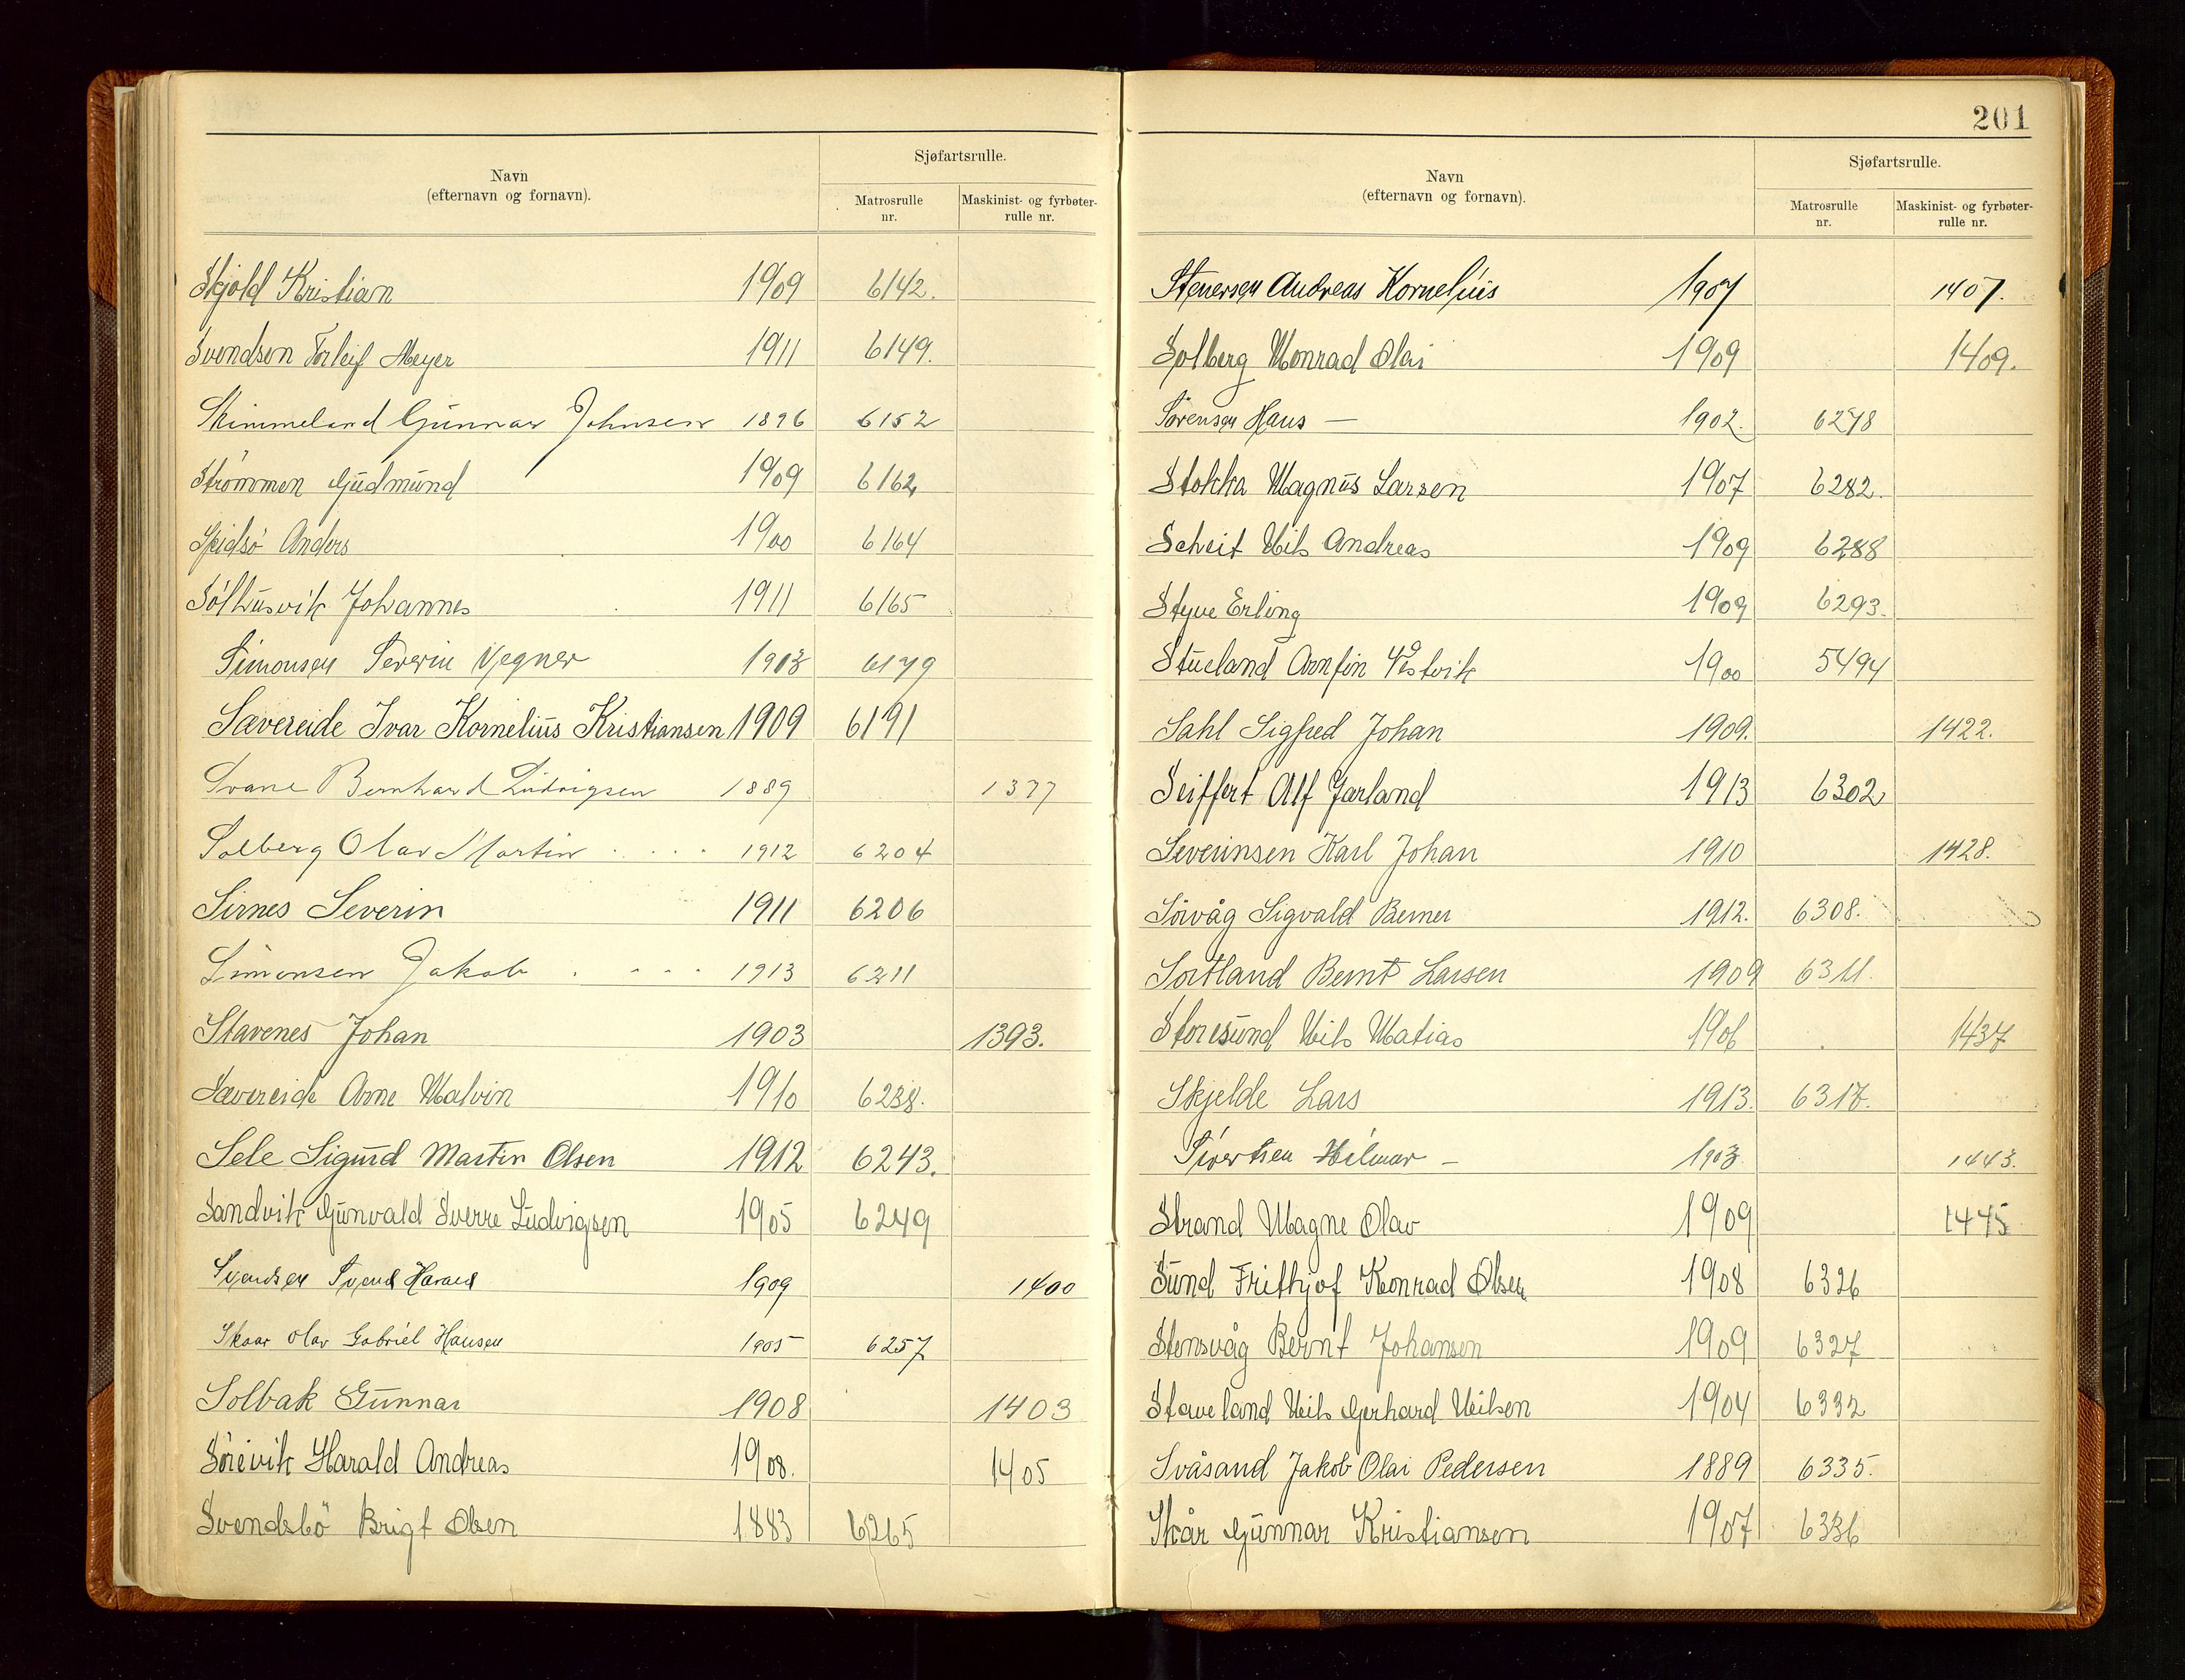 Navn
(efternavn og fornavn).
Sjøfartsrulle.
Matrosrulle nr.
Maskinist- og fyrbøter-rulle nr.
Skjold Kristian 1909 6142.
Svendsen Torleif Meyer 1911 6149.
Skimmeland Gunnar Johnsen 1896 6152
Strømmen Gudmund 1909 6162
Anders 1900 6164
Sølhusvik Johannes 1911 6165
Simonsen Severin Vegner 1903 6179
Sævereide Ivar Kornelius Kristiansen 1909 6191
Svane Bernhard Ludvigsen 1889 1377
Solberg Olav Martin 1912 6204
Sirnes Severin 1911 6206
Simonsen Jakob 1913 6211
Stavenes Johan 1903 1393.
Sævereide Arne Malvin 1910 6238.
Sele Sigurd Martin Olsen 1912 6243.
Sandvik Gunvald Sverre Ludvigsen 1905 6249
Svendsen Svend Harald 1909 1400
Skaar Olav Gabriel Hansen 1905 6257
Solbak Gunnar 1908 1403
Sørevik Harald Andreas 1908. 1405
Svendsbø Brigt Olsen 1883 6265
201
Navn
(efternavn og fornavn).
Sjøfartsrulle.
Matrosrulle nr.
Maskinist- og fyrbøter-rulle nr.
Stenersen Andreas Kornelius 1907 1407.
Solberg Monrad Olai 1909 1409.
Sørensen Hans — 1902. 6278
Stokka Magnus Larsen 1907 6282.
Scheit Nils Andreas 1909 6288
Styve Erling 1909 6293.
Stueland Arnfin Østvik 1900 5494
Sahl Sigfred Johan 1909. 1422.
Seiffert Alf Jarland 1913 6302
Severinsen Karl Johan 1910 1428.
Sørvåg Sigvald Berner 1912. 6308.
Sortland Bernt Larsen 1909 6311.
Storesund Nils Matias 1906 1437
Skjelde Lars 1913. 6317.
Sivertsen Hilmar — 1903 1443.
Strand Magne Olav 1909 1445
Sund Frithjof Konrad Olsen 1908 6326
Stensvåg Bernt Johansen 1909 6327
Staveland Nils Gerhard Nilsen 1904 6332
Svåsand Jakob Olai Pedersen 1889 6335.
Skår Gunnar Kristiansen 1907 6336